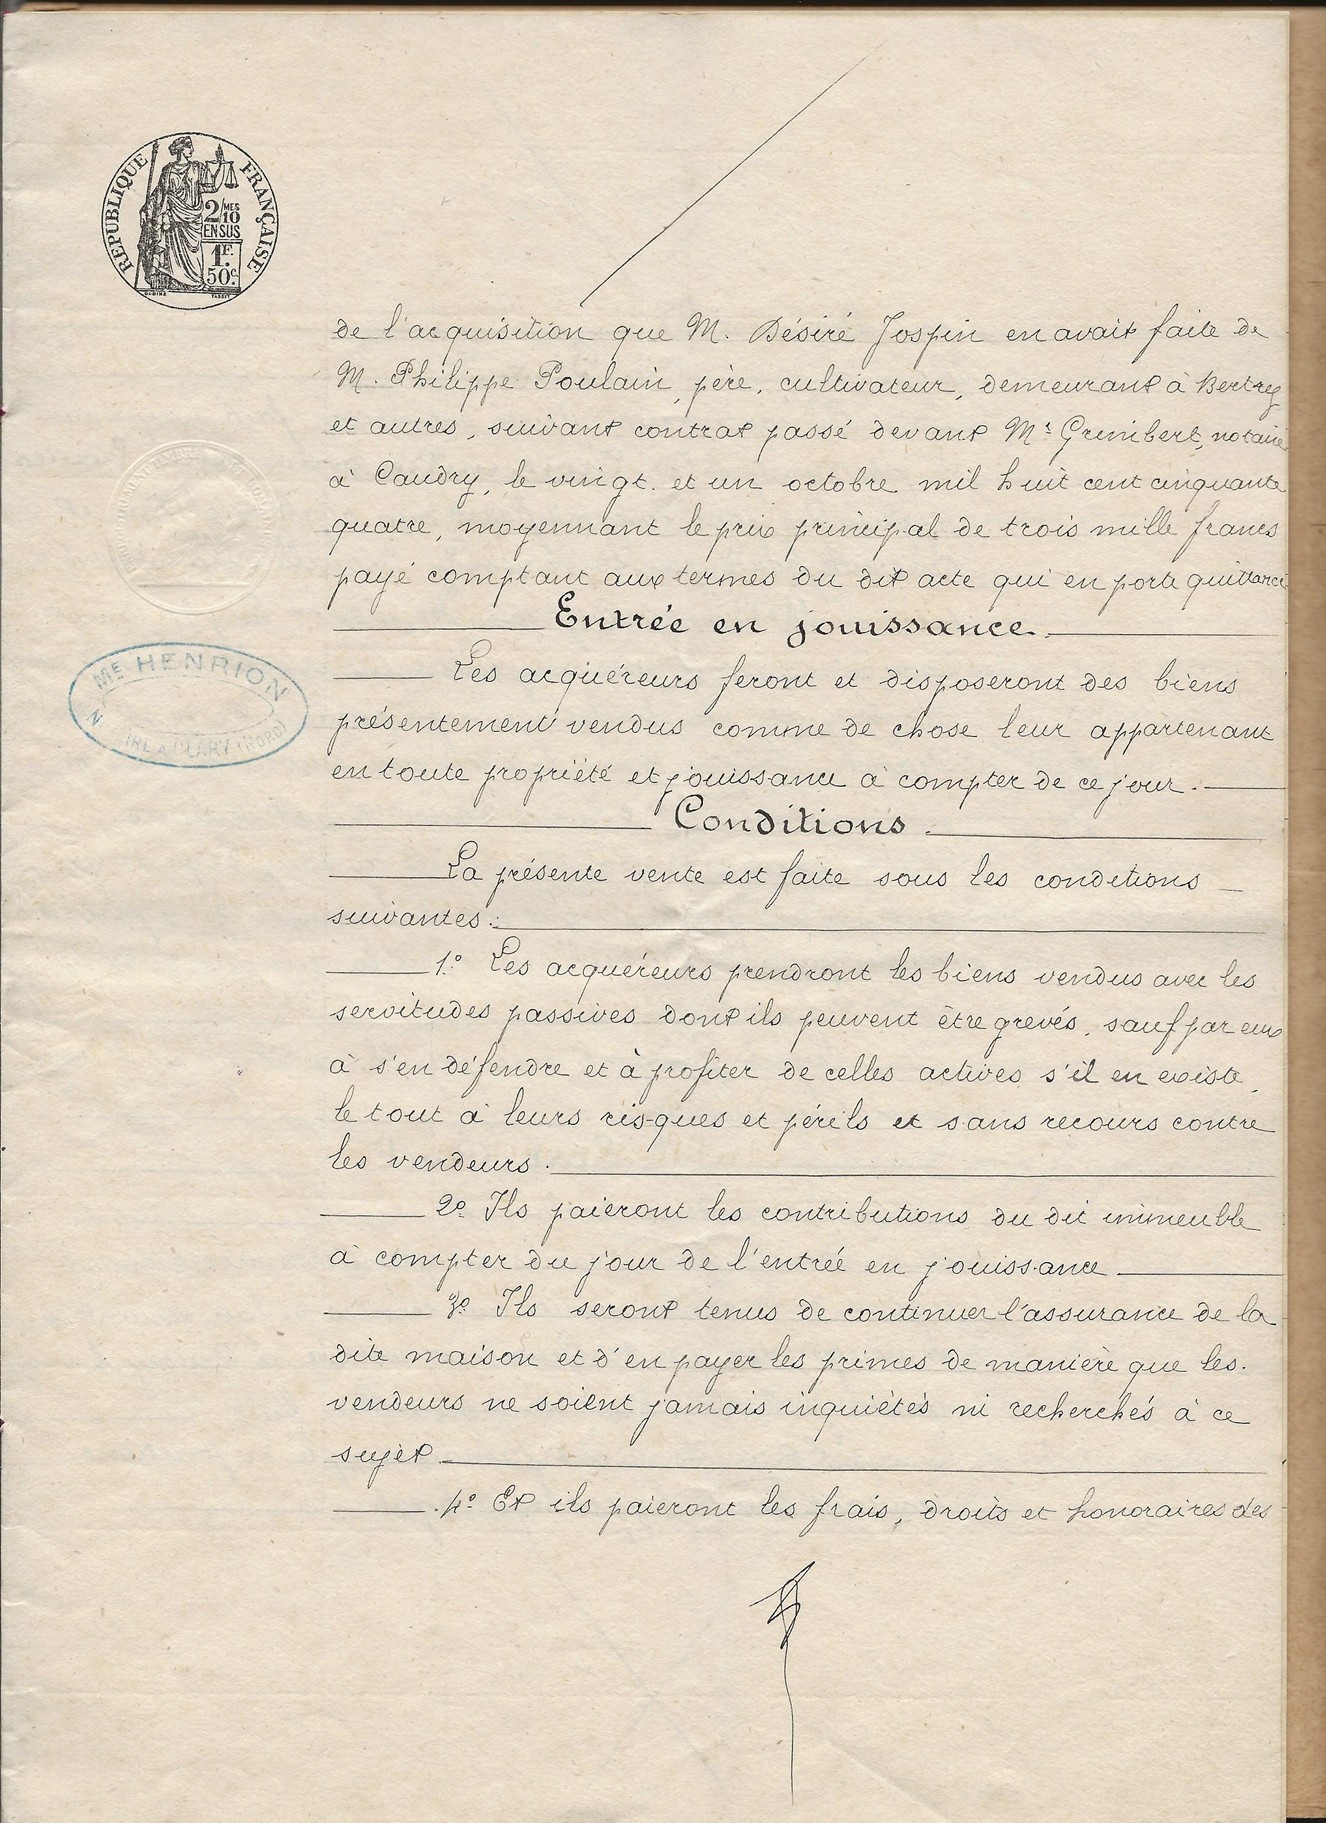 RÉPUBLIQUE FRANÇAISE
2/10 MES
EN SUS
1F.
50c.
OUDINÉ TASSET
de l'acquisition que M. Désiré Jospin en avait faite de
M. Philippe Poulain, père, cultivateur, demeurant à Bertry
et autres, suivant contrat passé devant Me Grimbert, notaire
à Caudry, le vingt et un octobre mil huit cent cinquante
quatre, moyennant le prix principal de trois mille francs
payé comptant aux termes du dit acte qui en porte quittance
Entrée en jouissance.
Les acquéreurs feront et disposeront des biens
présentement vendus comme de chose leur appartenant
en toute propriété et jouissance à compter de ce jour.
Conditions.
La présente vente est faite sous les conditions
suivantes:
1.º Les acquéreurs prendront les biens vendus avec les
servitudes passives dont ils peuvent être grevés, sauf par eux
à s'en défendre et à profiter de celles actives s'il en existe,
le tout à leurs risques et périls et sans recours contre
les vendeurs.
2º Ils paieront les contributions du dit immeuble
à compter du jour de l'entrée en jouissance
3º Ils seront tenus de continuer l'assurance de la
dite maison et d'en payer les primes de manière que les
vendeurs ne soient jamais inquiétés ni recherchés à ce
sujet.
4º Et ils paieront les frais, droits et honoraires des
ME HENRION
NOTAIRE A CLARY (NORD)